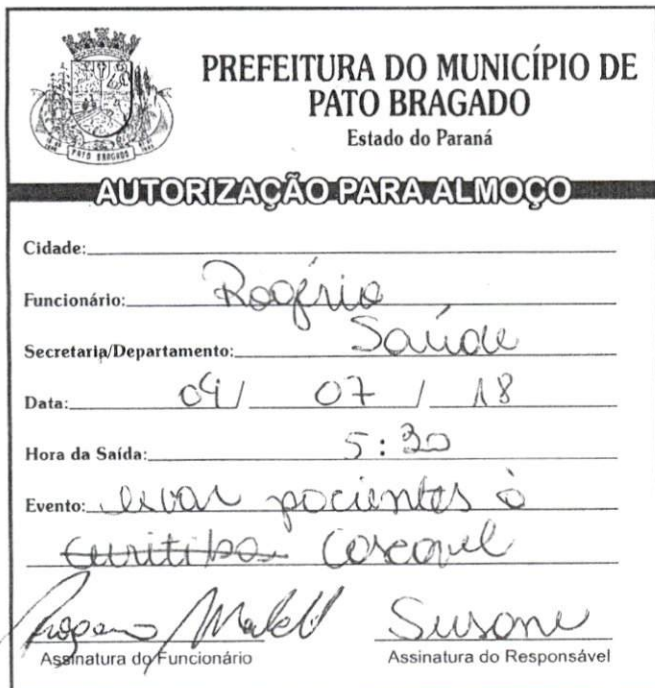 PREFEITURA DO MUNICÍPIO DE
PATO BRAGADO
Estado do Paraná
PATO BRAGADO
AUTORIZAÇÃO PARA ALMOÇO
Cidade:
Funcionário: Rogério
Secretaria/Departamento: Saúde
Data: 04 / 07 / 18
Hora da Saída: 5:30
Evento: levar pacientes à
Curitiba Cascavel
Assinatura do Funcionário
Susane
Assinatura do Responsável